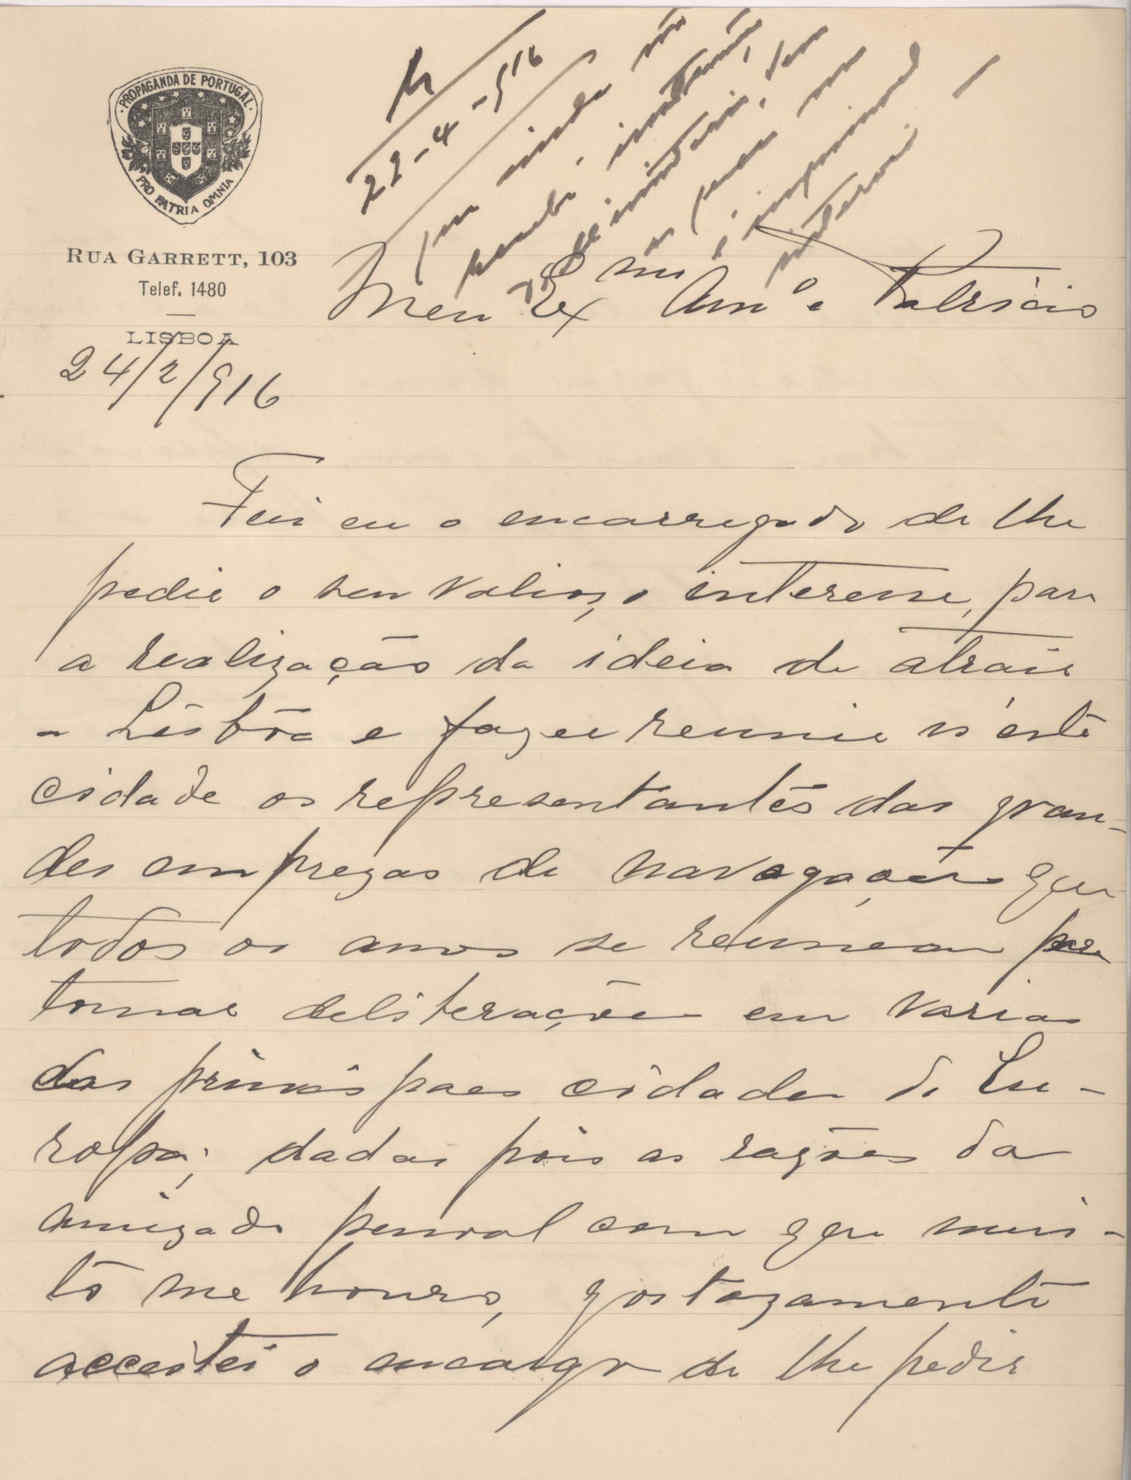 PROPAGANDA DE PORTUGAL
PRO PATRIA OMNIA
RUA GARRETT, 103
Telef. 1480
LISBOA
24/2/916
22-4-916
Meu Exmo Amo e Patricio
Fui eu o encarregado de lhe
pedir o seu valioso interesse, para
a realização da ideia de atrair
a Lisbôa e fazer reunir n'esta
cidade os representantes das gran-
des emprezas de navegações que
todos os anos se reuneem para
tomar deliberações em varias
das principaes cidades da Eu-
ropa; dadas pois as razões da
amizade pessoal com que mui-
to me honro, gostozamente
acceitei o encargo de lhe pedir